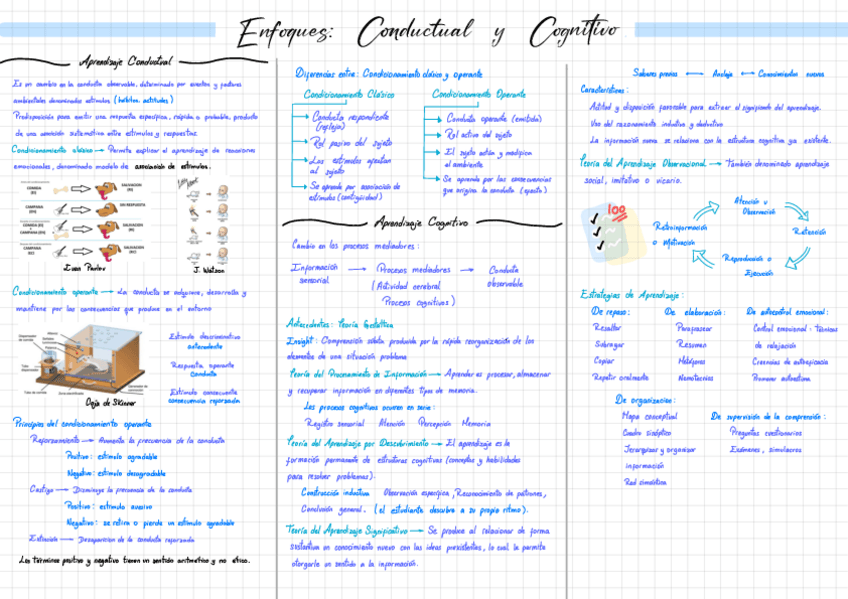 Enfoques: Conductual y Cognitivo
Aprendizaje Conductual
Es un cambio en la conducta observable, determinado por eventos y factores
ambientales denominados estímulos (hábitos, actitudes)
Predisposición para emitir una respuesta específica, rápida o probable, producto
de una asociación sistemática entre estímulos y respuestas.
Condicionamiento clásico → Permite explicar el aprendizaje de reacciones
emocionales, denominado modelo de asociación de estímulos.
COMIDA
SALIVACIÓN
CAMPANA
SIN RESPUESTA
CAMPANA
COMIDA
SALIVACIÓN
CAMPANA
SALIVACIÓN
Ivan Pavlov
J. Watson
Condicionamiento operante → La conducta se adquiere, desarrolla y
mantiene por las consecuencias que produce en el entorno
Caja de Skinner
Estímulo discriminativo
antecedente
Respuesta operante
Conducta
Estímulo consecuente
consecuencia reforzada
Principios del condicionamiento operante
Reforzamiento → Aumenta la frecuencia de la conducta
Positivo: estímulo agradable
Negativo: estímulo desagradable
Castigo → Disminuye la frecuencia de la conducta
Positivo: estímulo aversivo
Negativo: se retira o pierde un estímulo agradable
Extinción → Desaparición de la conducta reforzada
Los términos positivo y negativo tienen un sentido aritmético y no ético.
Diferencias entre: Condicionamiento clásico y operante
Condicionamiento Clásico
Conducta respondiente
(refleja)
Rol pasivo del sujeto
Los estímulos afectan
al sujeto
Se aprende por asociación de
estímulos (contigüidad)
Condicionamiento Operante
Conducta operante (emitida)
Rol activo del sujeto
El sujeto actúa y modifica
al ambiente
Se aprende por las consecuencias
que origina la conducta (efecto)
Aprendizaje Cognitivo
Cambio en los procesos mediadores:
Información → Procesos mediadores → Conducta
sensorial (Actividad cerebral observable
Procesos cognitivos)
Antecedentes: Teoría Gestáltica
Insight: Comprensión súbita producida por la rápida reorganización de los
elementos de una situación problema
Teoría del Procesamiento de Información → Aprender es procesar, almacenar
y recuperar información en diferentes tipos de memoria.
Los procesos cognitivos ocurren en serie:
Registro sensorial Atención Percepción Memoria
Teoría del Aprendizaje por Descubrimiento → El aprendizaje es la
formación permanente de estructuras cognitivas (conceptos y habilidades
para resolver problemas).
Construcción inductiva Observación específica, Reconocimiento de patrones,
Conclusión general. (el estudiante descubre a su propio ritmo).
Teoría del Aprendizaje Significativo → Se produce al relacionar de forma
sustantiva un conocimiento nuevo con las ideas preexistentes, lo cual le permite
otorgarle un sentido a la información.
Saberes previos ↔ Anclaje ↔ Conocimientos nuevos
Características:
Actitud y disposición favorable para extraer el significado del aprendizaje.
Uso del razonamiento inductivo y deductivo
La información nueva se relaciona con la estructura cognitiva ya existente.
Teoría del Aprendizaje Observacional → También denominado aprendizaje
social, imitativo o vicario.
100
Atención u
Observación
Retención
Reproducción o
Ejecución
Retroinformación
o Motivación
Estrategias de Aprendizaje:
De repaso:
Resaltar
Subrayar
Copiar
Repetir oralmente
De elaboración:
Parafrasear
Resumen
Metáforas
Nemotecnias
De autocontrol emocional:
Control emocional: Técnicas
de relajación
Creencias de autoeficacia
Promover autoestima
De organización:
Mapa conceptual
Cuadro sinóptico
Jerarquizar y organizar
información
Red semántica
De supervisión de la comprensión:
Preguntas cuestionarios
Exámenes, simulacros